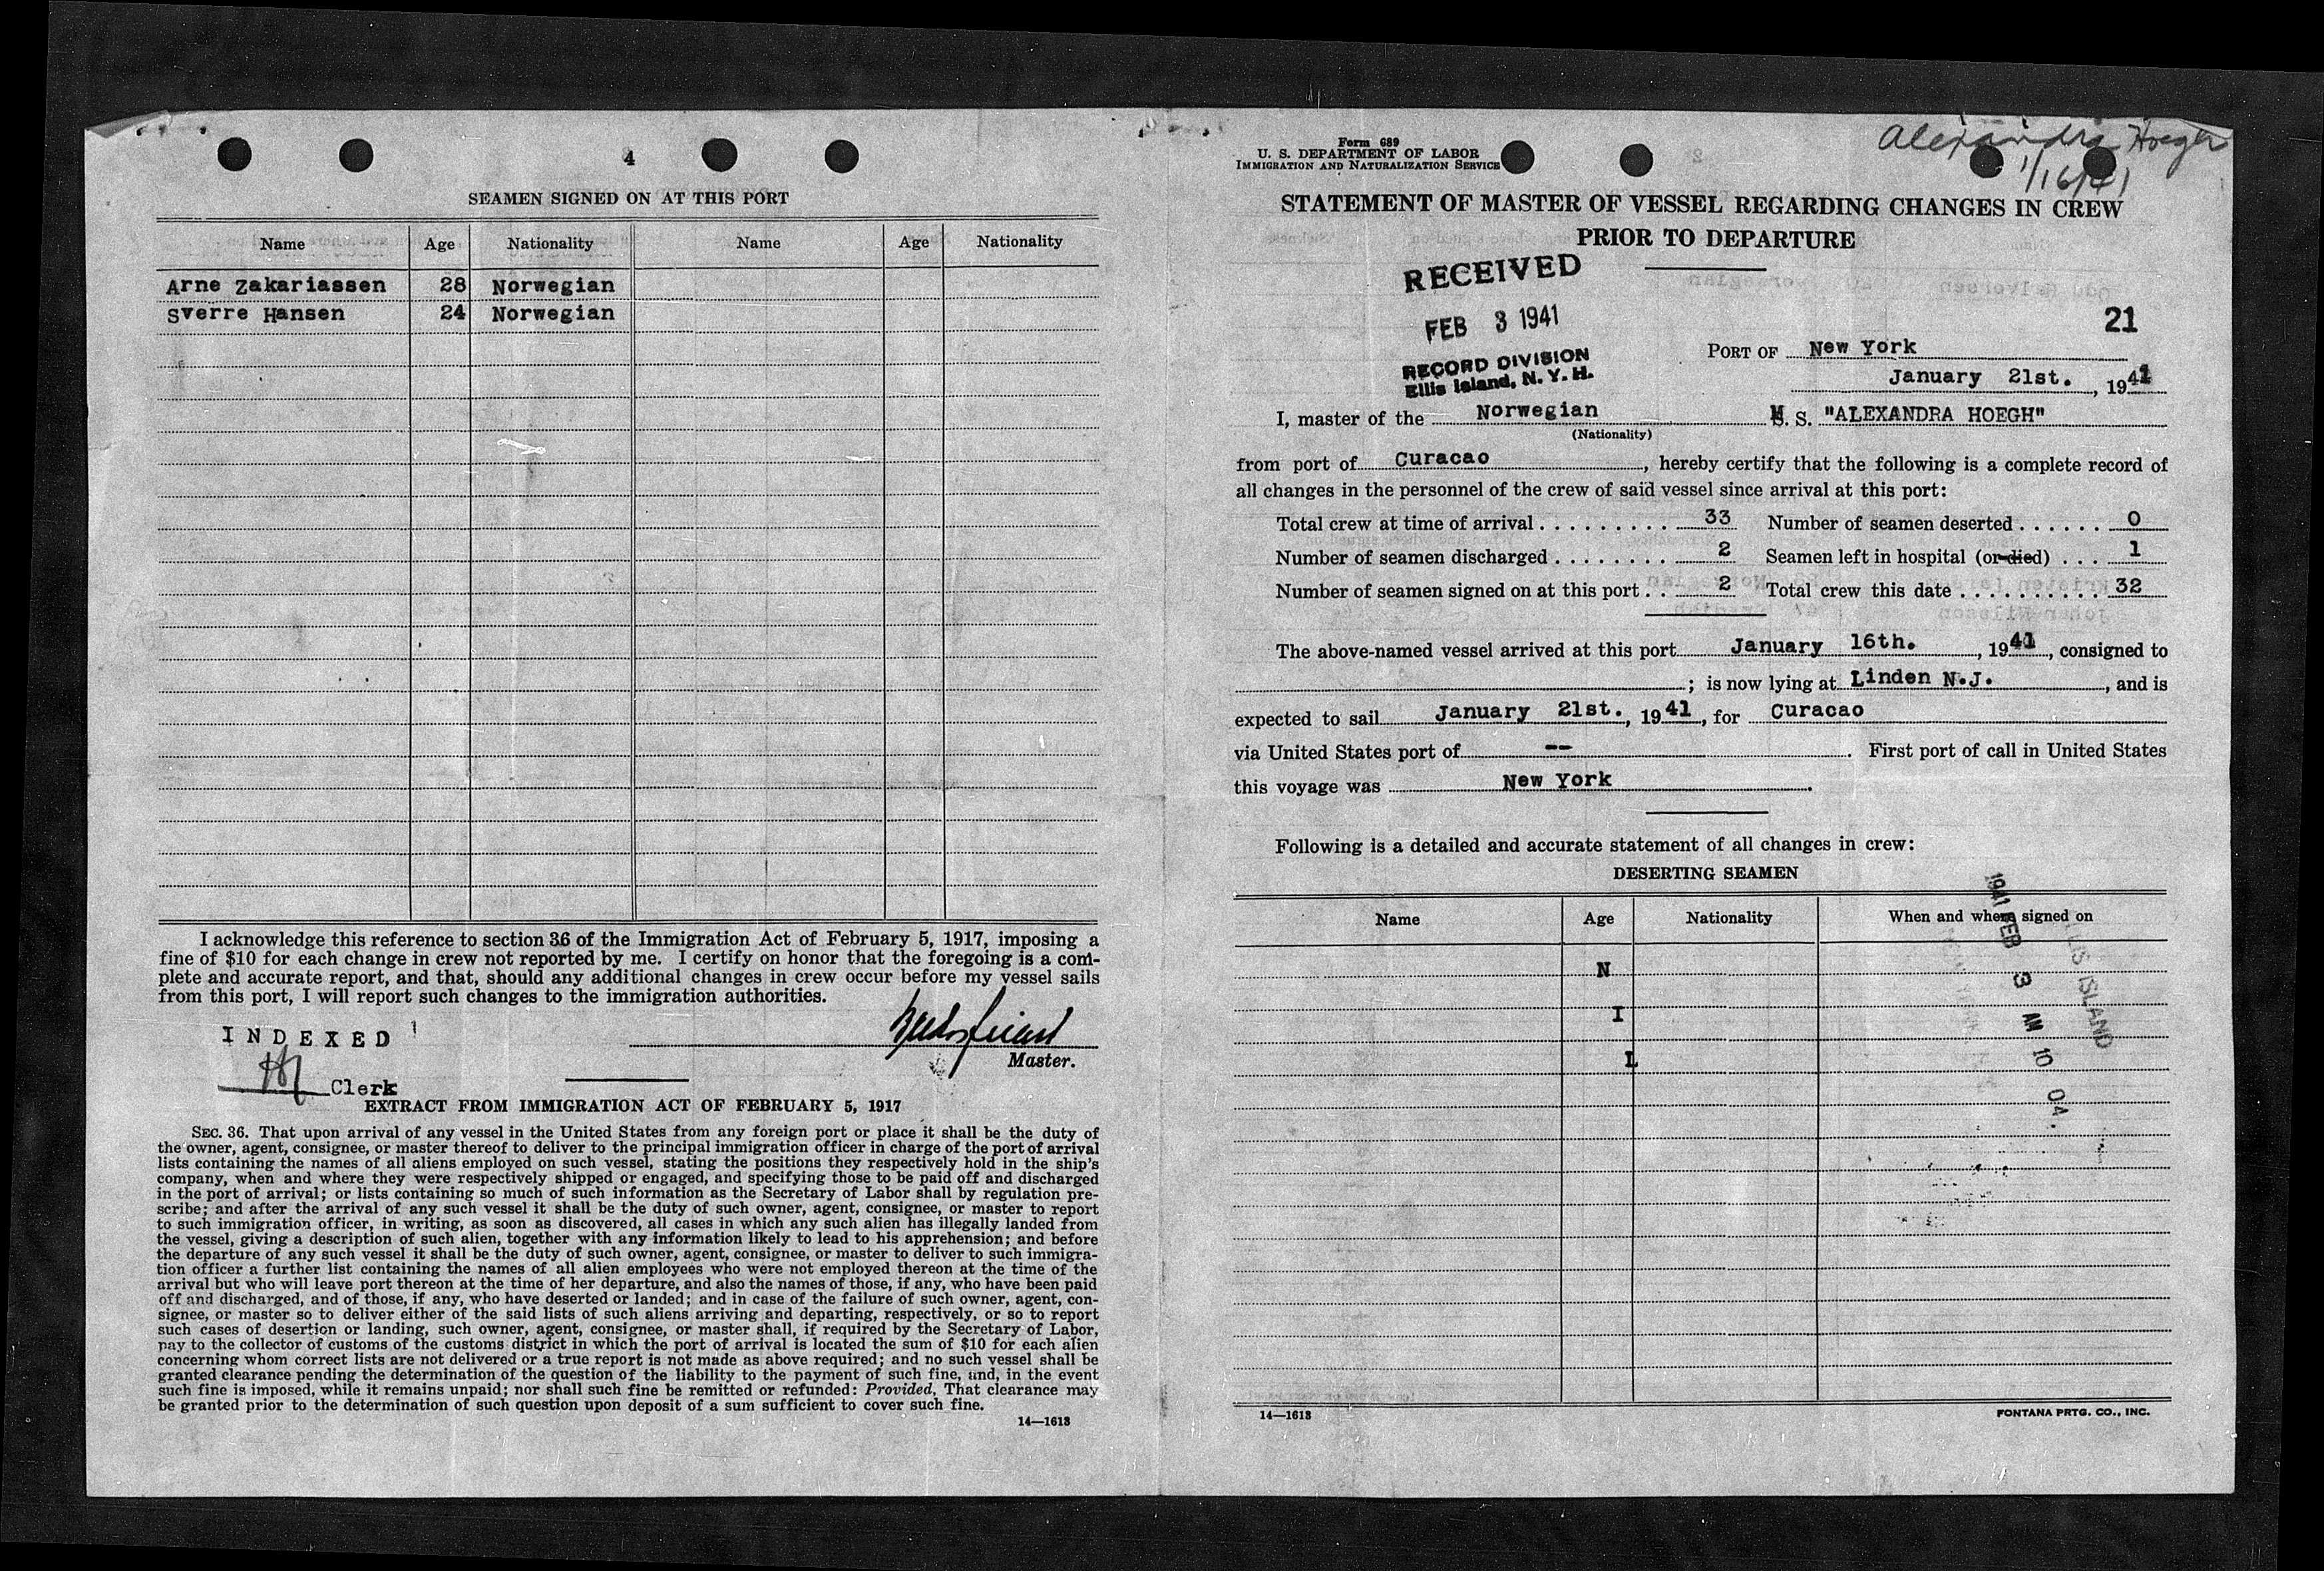 4
SEAMEN SIGNED ON AT THIS PORT
Name Age Nationality Name Age Nationality
Arne Zakariassen 28 Norwegian
Sverre Hansen 24 Norwegian
I acknowledge this reference to section 36 of the Immigration Act of February 5, 1917, imposing a
fine of $10 for each change in crew not reported by me. I certify on honor that the foregoing is a com-
plete and accurate report, and that, should any additional changes in crew occur before my vessel sails
from this port, I will report such changes to the immigration authorities.
INDEXED
Master.
Clerk
EXTRACT FROM IMMIGRATION ACT OF FEBRUARY 5, 1917
SEC. 36. That upon arrival of any vessel in the United States from any foreign port or place it shall be the duty of
the owner, agent, consignee, or master thereof to deliver to the principal immigration officer in charge of the port of arrival
lists containing the names of all aliens employed on such vessel, stating the positions they respectively hold in the ship's
company, when and where they were respectively shipped or engaged, and specifying those to be paid off and discharged
in the port of arrival; or lists containing so much of such information as the Secretary of Labor shall by regulation pre-
scribe; and after the arrival of any such vessel it shall be the duty of such owner, agent, consignee, or master to report
to such immigration officer, in writing, as soon as discovered, all cases in which any such alien has illegally landed from
the vessel, giving a description of such alien, together with any information likely to lead to his apprehension; and before
the departure of any such vessel it shall be the duty of such owner, agent, consignee, or master to deliver to such immigra-
tion officer a further list containing the names of all alien employees who were not employed thereon at the time of the
arrival but who will leave port thereon at the time of her departure, and also the names of those, if any, who have been paid
off and discharged, and of those, if any, who have deserted or landed; and in case of the failure of such owner, agent, con-
signee, or master so to deliver either of the said lists of such aliens arriving and departing, respectively, or so to report
such cases of desertion or landing, such owner, agent, consignee, or master shall, if required by the Secretary of Labor,
pay to the collector of customs of the customs district in which the port of arrival is located the sum of $10 for each alien
concerning whom correct lists are not delivered or a true report is not made as above required; and no such vessel shall be
granted clearance pending the determination of the question of the liability to the payment of such fine, and, in the event
such fine is imposed, while it remains unpaid; nor shall such fine be remitted or refunded: Provided, That clearance may
be granted prior to the determination of such question upon deposit of a sum sufficient to cover such fine.
14—1613
Form 689
U. S. DEPARTMENT OF LABOR
IMMIGRATION AND NATURALIZATION SERVICE
Alexandra Hoegh
1/16/41
STATEMENT OF MASTER OF VESSEL REGARDING CHANGES IN CREW
PRIOR TO DEPARTURE
RECEIVED
FEB 3 1941
RECORD DIVISION
Ellis Island, N. Y. H.
21
PORT OF New York
January 21st., 1941
I, master of the Norwegian M. S. "ALEXANDRA HOEGH"
(Nationality)
from port of Curacao, hereby certify that the following is a complete record of
all changes in the personnel of the crew of said vessel since arrival at this port:
Total crew at time of arrival . . . . . . . . . 33 Number of seamen deserted . . . . . . 0
Number of seamen discharged . . . . . . . . 2 Seamen left in hospital (or died) . . . 1
Number of seamen signed on at this port . . 2 Total crew this date . . . . . . . . . . 32
The above-named vessel arrived at this port January 16th., 1941, consigned to
; is now lying at Linden N.J., and is
expected to sail January 21st., 1941, for Curacao
via United States port of --. First port of call in United States
this voyage was New York.
Following is a detailed and accurate statement of all changes in crew:
DESERTING SEAMEN
Name Age Nationality When and where signed on
N
I
L
1941 FEB 3 AM 10 04
ELLIS ISLAND
14—1613
FONTANA PRTG. CO., INC.